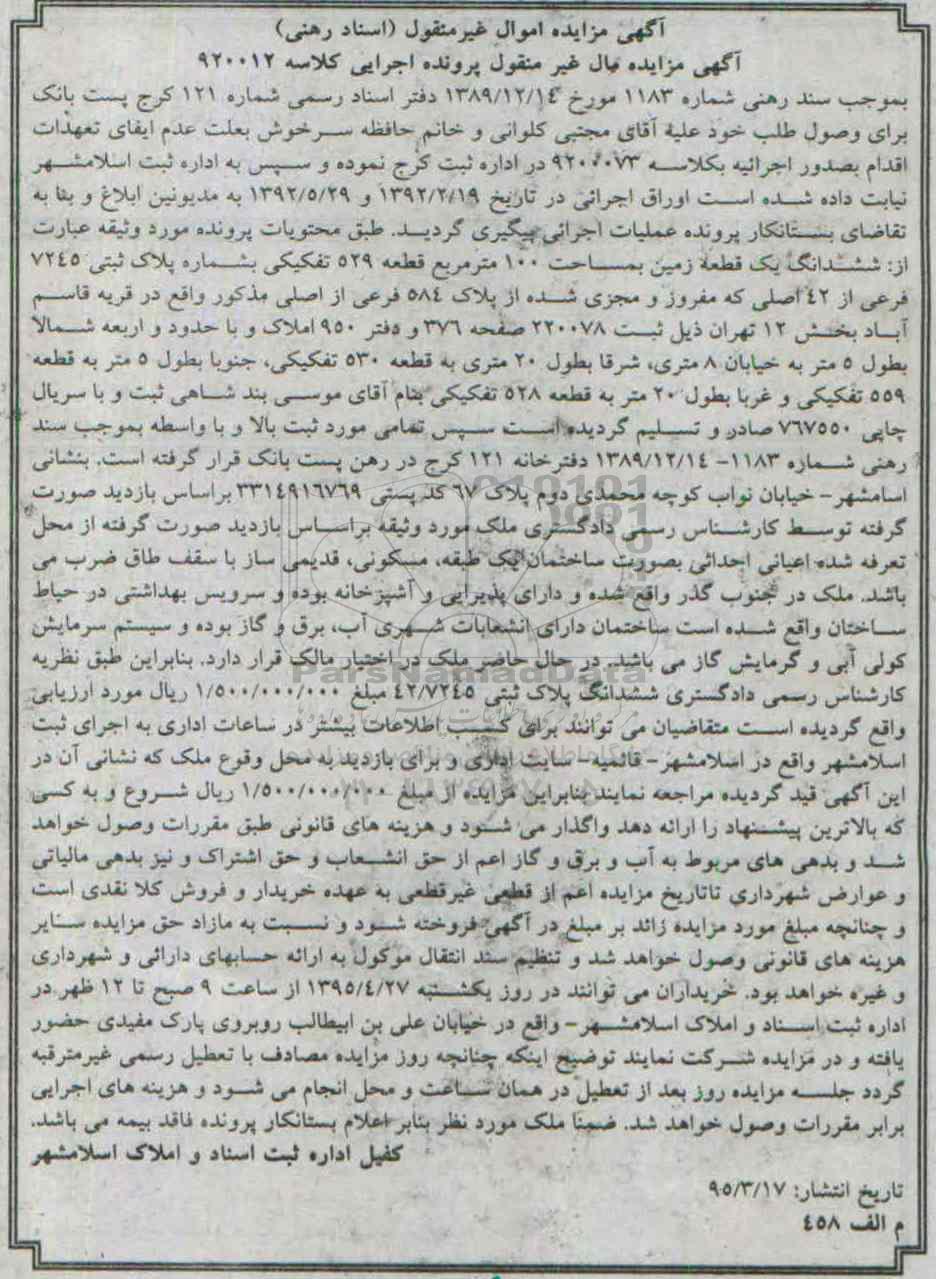 آگهی مزایده اموال غیرمنقول (اسناد رهنی)
آگهی مزایده مال غیر منقول پرونده اجرایی کلاسه ۹۲۰۰۱۲
بموجب سند رهنی شماره ۱۱۸۳ مورخ ۱۳۸۹/۱۲/۱۴ دفتر اسناد رسمی شماره ۱۲۱ کرج پست بانک
برای وصول طلب خود علیه آقای مجتبی کلوانی و خانم حافظه سرخوش بعلت عدم ایفای تعهدات
اقدام بصدور اجرائیه بکلاسه ۹۲۰۰۰۷۳ در اداره ثبت کرج نموده و سپس به اداره ثبت اسلامشهر
نیابت داده شده است اوراق اجرائی در تاریخ ۱۳۹۲/۲/۱۹ و ۱۳۹۲/۵/۲۹ به مدیونین ابلاغ و بنا به
تقاضای بستانکار پرونده عملیات اجرائی پیگیری گردید. طبق محتویات پرونده مورد وثیقه عبارت
از: ششدانگ یک قطعه زمین بمساحت ۱۰۰ مترمربع قطعه ۵۲۹ تفکیکی بشماره پلاک ثبتی ۷۲۴۵
فرعی از ۴۲ اصلی که مفروز و مجزی شده از پلاک ۵۸۴ فرعی از اصلی مذکور واقع در قریه قاسم
آباد بخش ۱۲ تهران ذیل ثبت ۲۲۰۰۷۸ صفحه ۳۷۶ و دفتر ۹۵۰ املاک و با حدود و اربعه شمالا
بطول ۵ متر به خیابان ۸ متری، شرقا بطول ۲۰ متری به قطعه ۵۳۰ تفکیکی، جنوبا بطول ۵ متر به قطعه
۵۵۹ تفکیکی و غربا بطول ۲۰ متر به قطعه ۵۲۸ تفکیکی بنام آقای موسی بند شاهی ثبت و با سریال
چاپی ۷۶۷۵۵۰ صادر و تسلیم گردیده است سپس تمامی مورد ثبت بالا و با واسطه بموجب سند
رهنی شماره ۱۱۸۳- ۱۳۸۹/۱۲/۱۴ دفترخانه ۱۲۱ کرج در رهن پست بانک قرار گرفته است. بنشانی
اسامشهر - خیابان نواب کوچه محمدی دوم پلاک ۶۷ کد پستی ۳۳۱۴۹۱۶۷۶۹ براساس بازدید صورت
گرفته توسط کارشناس رسمی دادگستری ملک مورد وثیقه براساس بازدید صورت گرفته از محل
تعرفه شده اعیانی احداثی بصورت ساختمان یک طبقه، مسکونی، قدیمی ساز با سقف طاق ضرب می
باشد. ملک در جنوب گذر واقع شده و دارای پذیرایی و آشپزخانه بوده و سرویس بهداشتی در حیاط
ساختان واقع شده است ساختمان دارای انشعابات شهری آب، برق و گاز بوده و سیستم سرمایش
کولی آبی و گرمایش گاز می باشد. در حال حاضر ملک در اختیار مالک قرار دارد. بنابراین طبق نظریه
کارشناس رسمی دادگستری ششدانگ پلاک ثبتی ۴۲/۷۲۴۵ مبلغ ۱/۵۰۰/۰۰۰/۰۰۰ ریال مورد ارزیابی
واقع گردیده است متقاضیان می توانند برای کسب اطلاعات بیشتر در ساعات اداری به اجرای ثبت
اسلامشهر واقع در اسلامشهر- قائمیه- سایت اداری و برای بازدید به محل وقوع ملک که نشانی آن در
این آگهی قید گردیده مراجعه نمایند بنابراین مزایده از مبلغ ۱/۵۰۰/۰۰۰/۰۰۰ ریال شروع و به کسی
که بالاترین پیشنهاد را ارائه دهد واگذار می شود و هزینه های قانونی طبق مقررات وصول خواهد
شد و بدهی های مربوط به آب و برق و گاز اعم از حق انشعاب و حق اشتراک و نیز بدهی مالیاتی
و عوارض شهرداری تاتاریخ مزایده اعم از قطعی غیرقطعی به عهده خریدار و فروش کلا نقدی است
و چنانچه مبلغ مورد مزایده زائد بر مبلغ در آگهی فروخته شود و نسبت به مازاد حق مزایده سایر
هزینه های قانونی وصول خواهد شد و تنظیم سند انتقال موکول به ارائه حسابهای دارائی و شهرداری
و غیره خواهد بود. خریداران می توانند در روز یکشنبه ۱۳۹۵/۴/۲۷ از ساعت ۹ صبح تا ۱۲ ظهر در
اداره ثبت اسناد و املاک اسلامشهر- واقع در خیابان علی بن ابیطالب روبروی پارک مفیدی حضور
یافته و در مزایده شرکت نمایند توضیح اینکه چنانچه روز مزایده مصادف با تعطیل رسمی غیرمترقبه
گردد جلسه مزایده روز بعد از تعطیل در همان ساعت و محل انجام می شود و هزینه های اجرایی
برابر مقررات وصول خواهد شد. ضمنا ملک مورد نظر بنابر اعلام بستانکار پرونده فاقد بیمه می باشد.
کفیل اداره ثبت اسناد و املاک اسلامشهر
تاریخ انتشار: ۹۵/۳/۱۷
م الف ۴۵۸
ParsNamadData